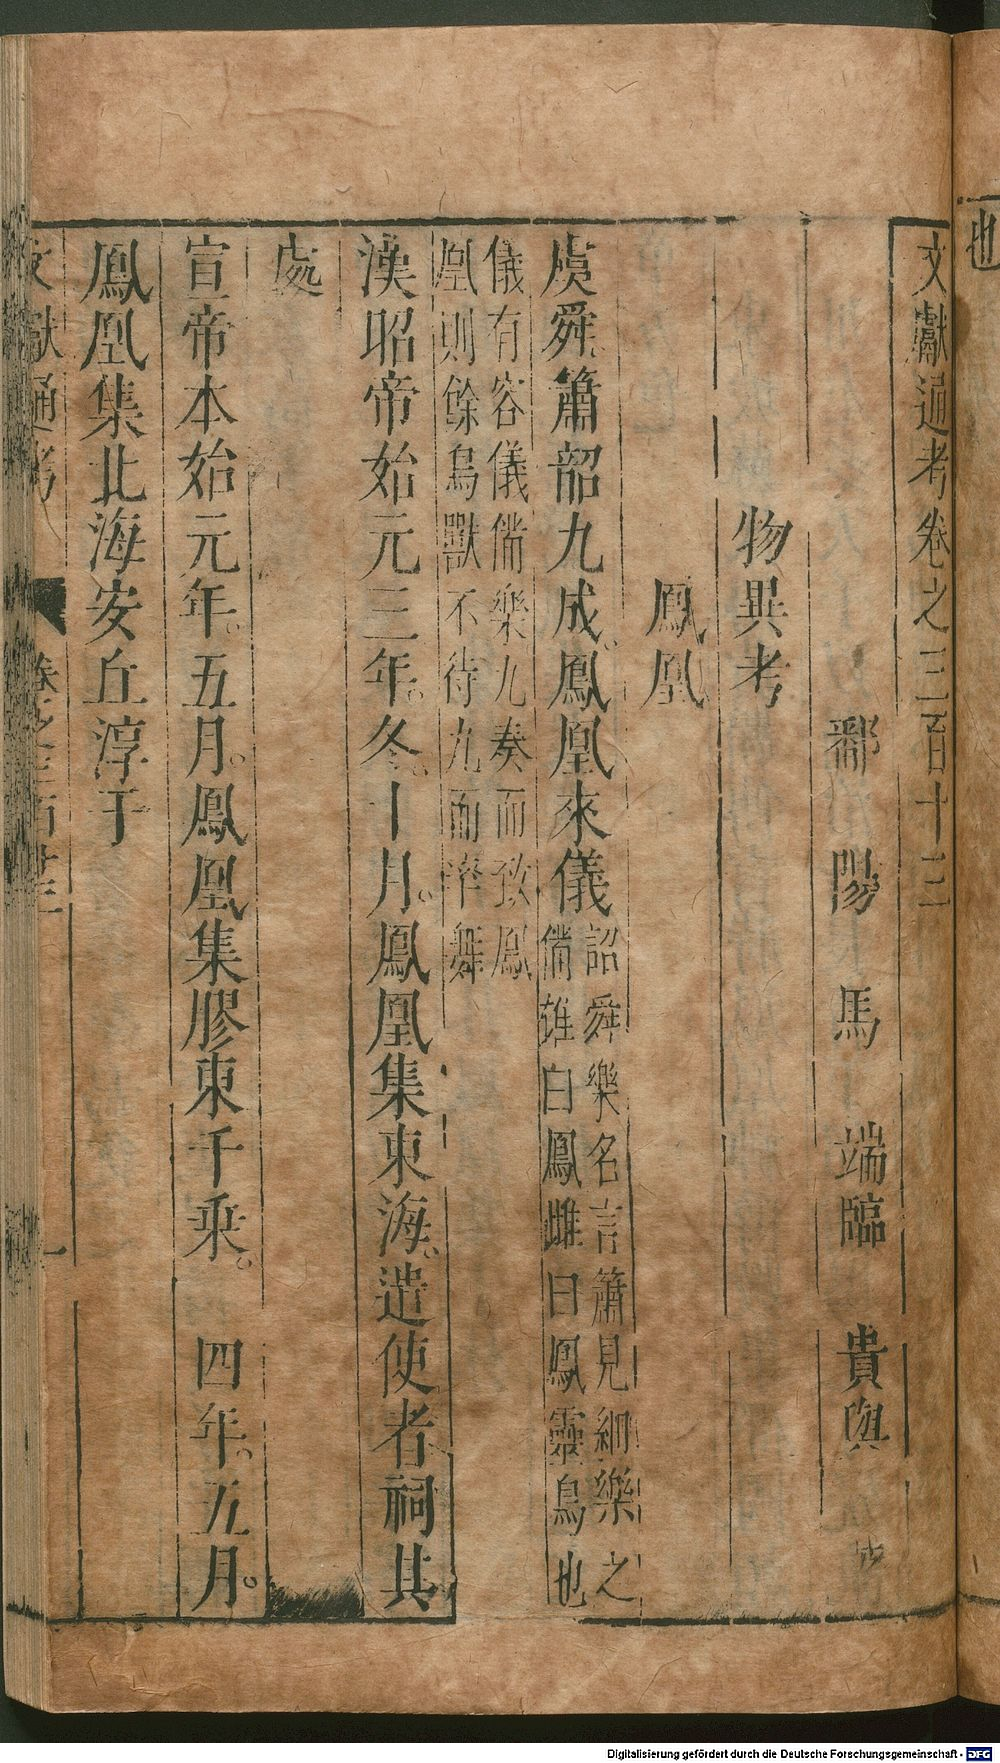 也
文獻通考卷之三百十三
鄱陽馬端臨貴與
物異考
鳳凰
虞舜簫韶九成鳳凰來儀韶舜樂名言簫見細樂之
備雄曰鳳雌曰凰靈鳥也
儀有容儀備樂九奏而致鳳
凰則餘鳥獸不待九而率舞
漢昭帝始元三年冬十月鳳凰集東海遣使者祠其
處
宣帝本始元年五月鳳凰集膠東千乘 四年五月
鳳凰集北海安丘淳于
文獻通考 卷之三百十三 一
Digitalisierung gefördert durch die Deutsche Forschungsgemeinschaft - DFG